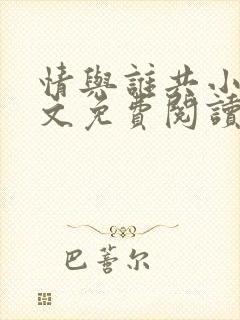 情與誰共小
文免費閱讀
巴萫尔